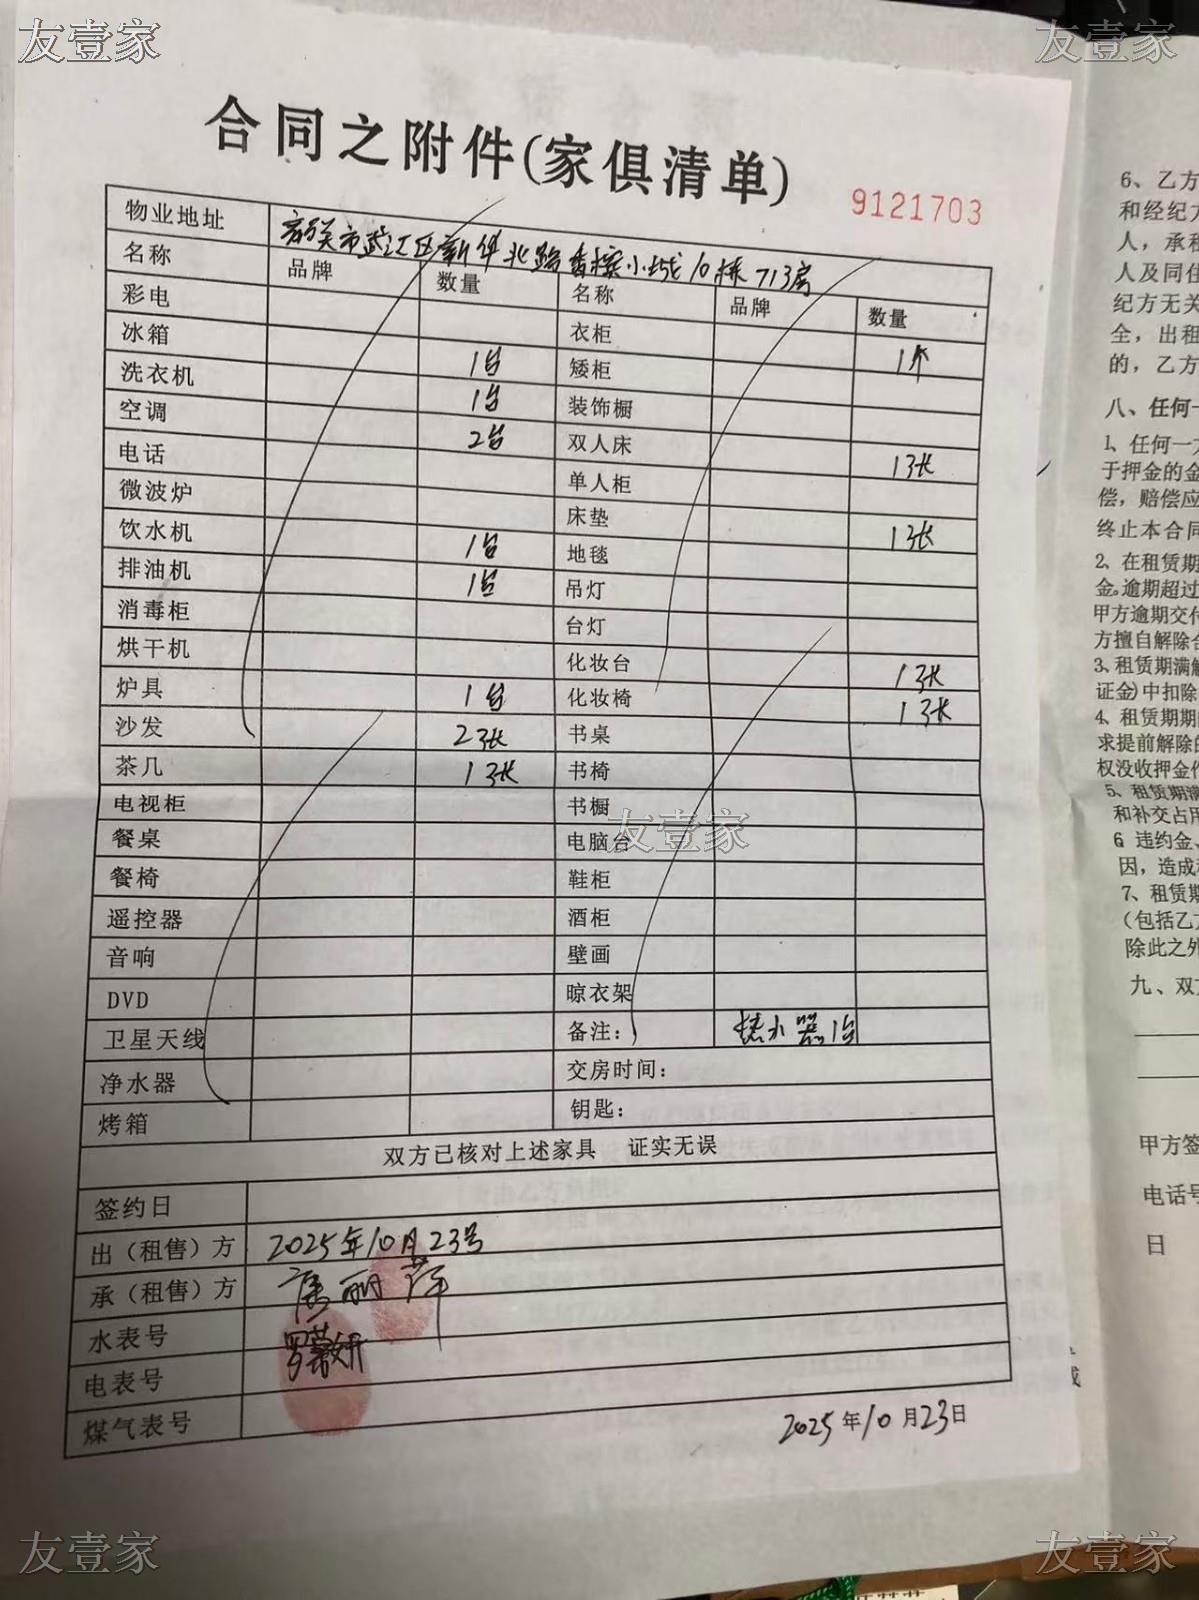 友壹家
友壹家
合同之附件(家俱清单)
9121703
物业地址 韶关市武江区新华北路香檬小城10栋713房
名称 品牌 数量 名称 品牌 数量
彩电 衣柜 1个
冰箱 1台 矮柜
洗衣机 1台 装饰橱
空调 2台 双人床 1张
电话 单人柜
微波炉 床垫 1张
饮水机 1台 地毯
排油机 1台 吊灯
消毒柜 台灯
烘干机 化妆台 1张
炉具 1台 化妆椅 1张
沙发 2张 书桌
茶几 1张 书椅
电视柜 书橱
友壹家
餐桌 电脑台
餐椅 鞋柜
遥控器 酒柜
音响 壁画
DVD 晾衣架
卫星天线 备注: 热水器1台
净水器 交房时间:
烤箱 钥匙:
双方已核对上述家具 证实无误
签约日 2025年10月23号
出（租售）方
承（租售）方
水表号
电表号
煤气表号
2025年10月23日
6、乙方
和经纪方
人，承租
人及同住
纪方无关
全，出租
的，乙方
八、任何一
1、任何一方
于押金的金
偿，赔偿应
终止本合同
2、在租赁期
金。逾期超过
甲方逾期交付
方擅自解除合
3、租赁期满解
证金)中扣除
4、租赁期期
求提前解除的
权没收押金作
5、租赁期满
和补交占用
6、违约金、
因，造成
7、租赁期
（包括乙方
除此之外
九、双方
甲方签
电话号
日
友壹家
友壹家